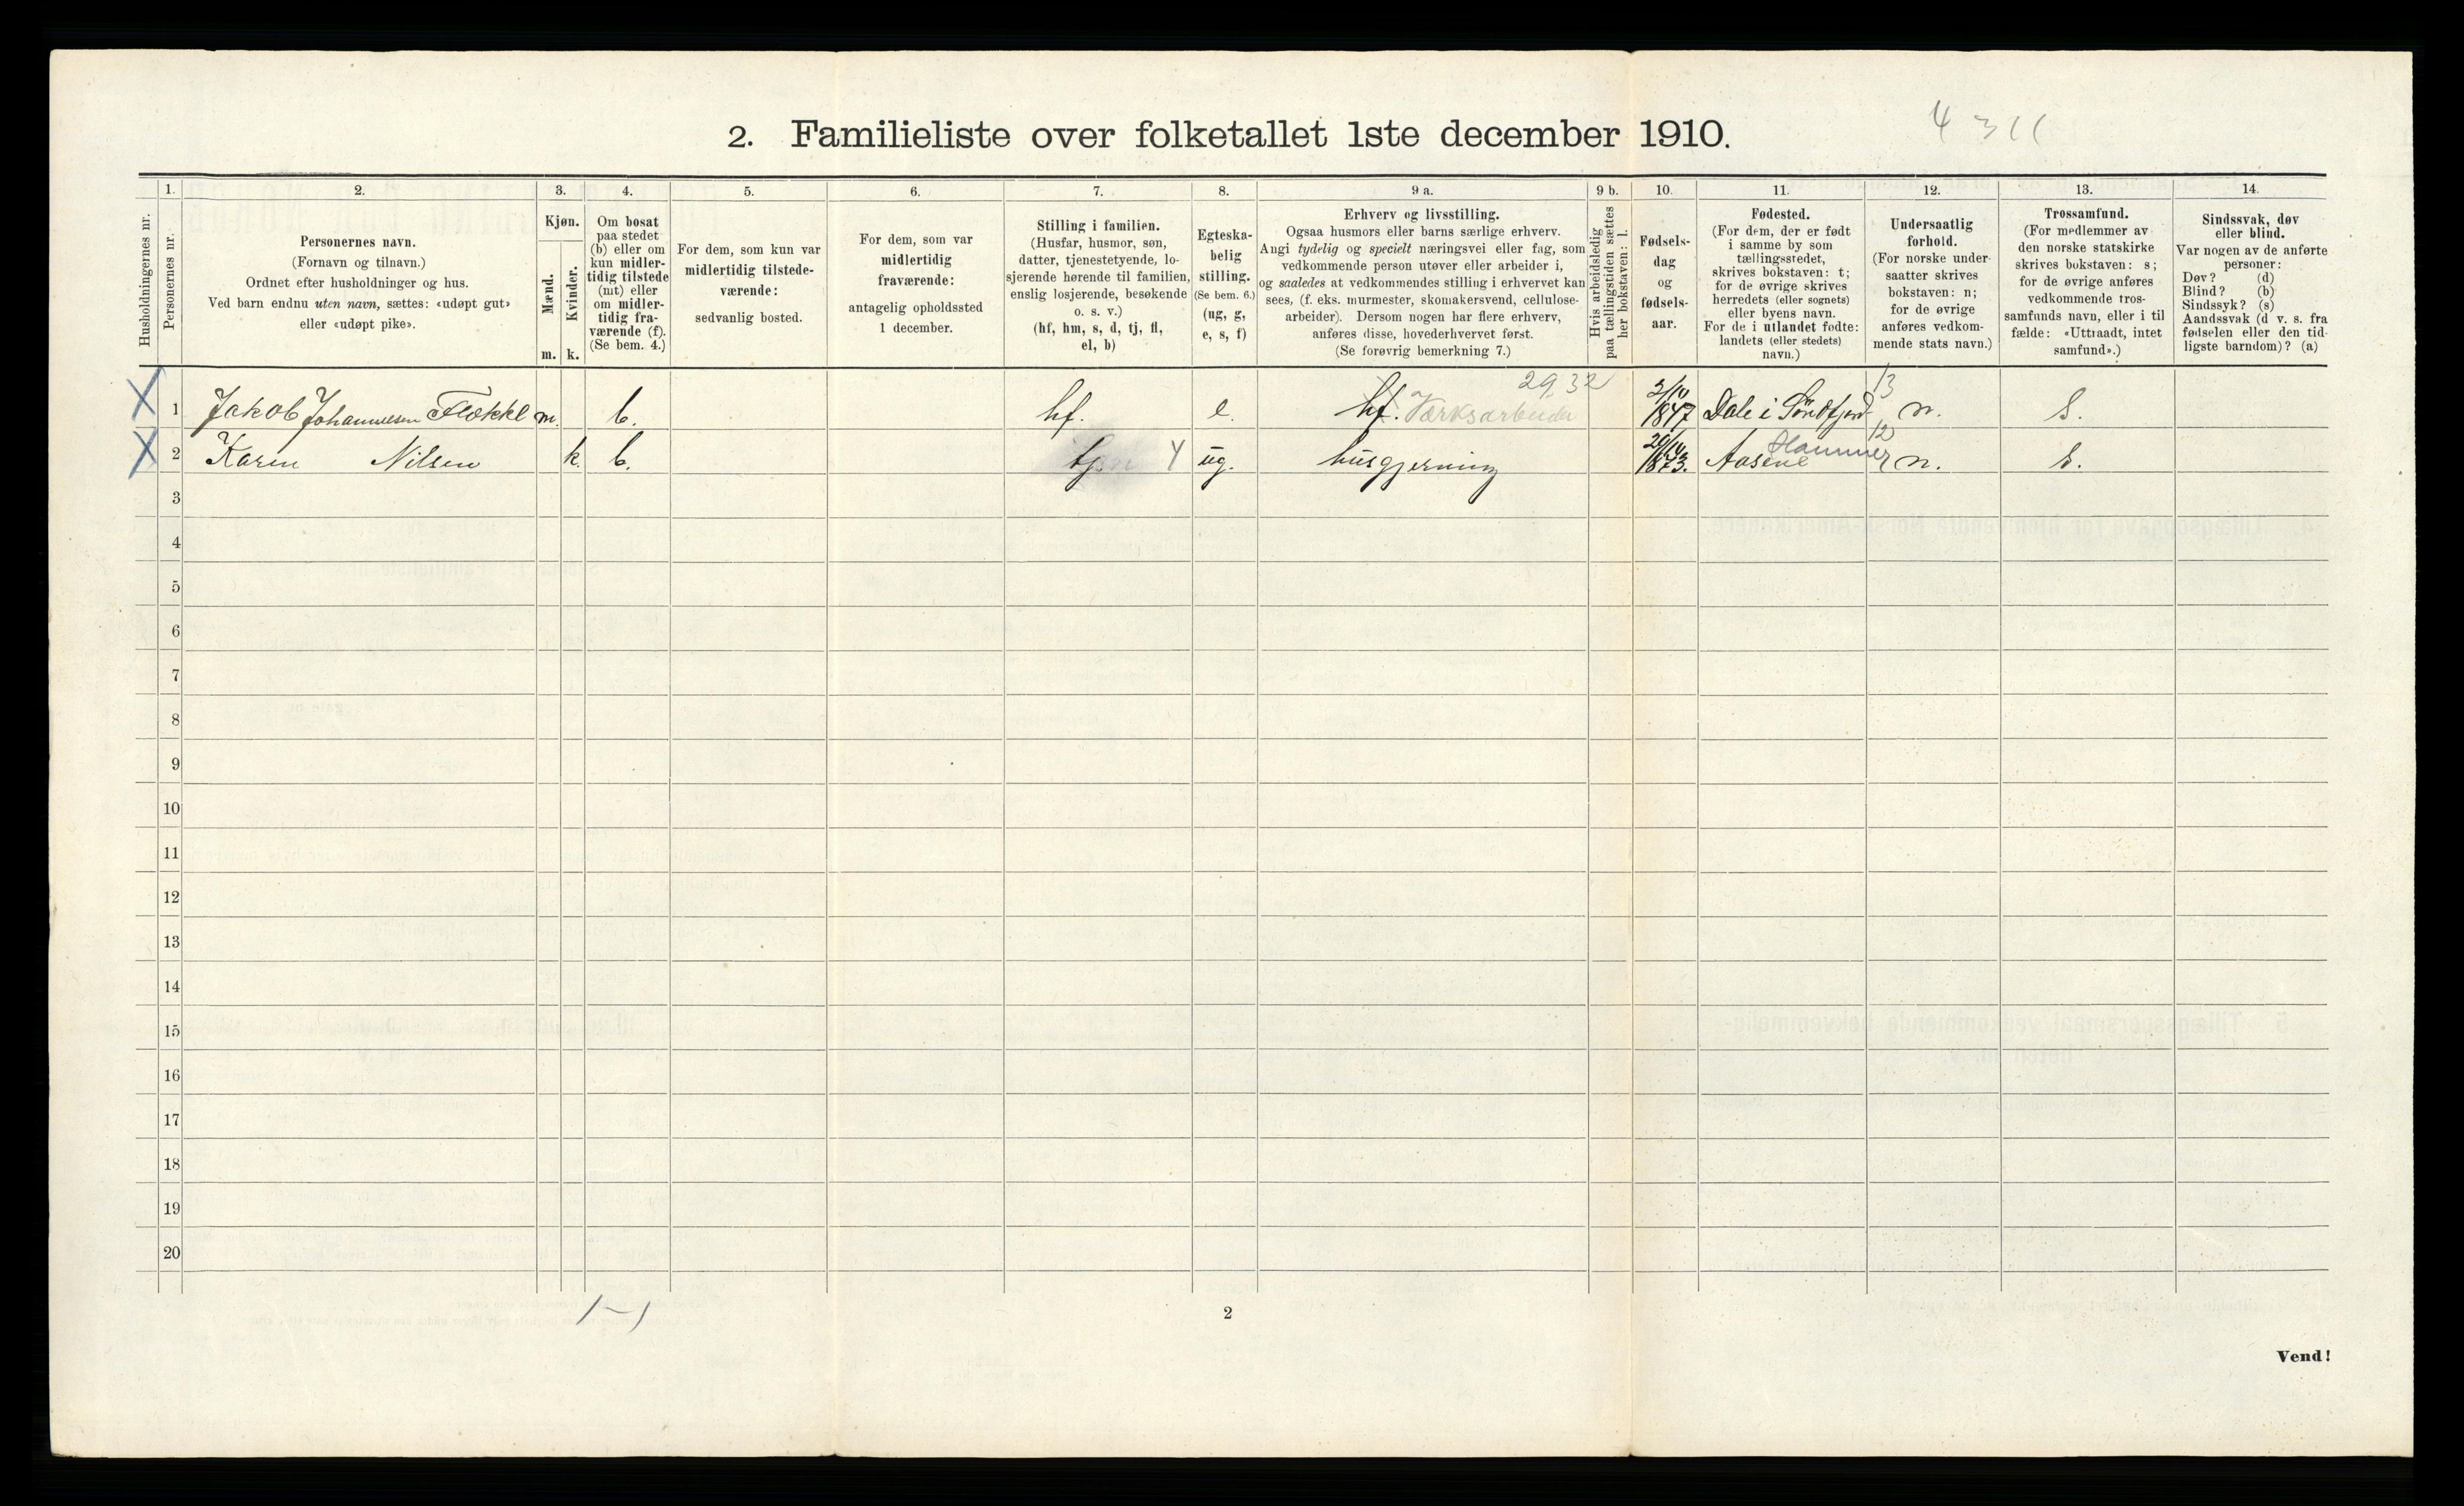 2. Familieliste over folketallet 1ste december 1910.
4 311
Husholdningernes nr.
1.
Personernes nr.
2.
Personernes navn.
(Fornavn og tilnavn.)
Ordnet efter husholdninger og hus.
Ved barn endnu uten navn, sættes: «udøpt gut»
eller «udøpt pike».
3.
Kjøn.
Mænd.
Kvinder.
m. k.
4.
Om bosat
paa stedet
(b) eller om
kun midler-
tidig tilstede
(mt) eller
om midler-
tidig fra-
værende (f).
(Se bem. 4.)
5.
For dem, som kun var
midlertidig tilstede-
værende:
sedvanlig bosted.
6.
For dem, som var
midlertidig
fraværende:
antagelig opholdssted
1 december.
7.
Stilling i familien.
(Husfar, husmor, søn,
datter, tjenestetyende, lo-
sjerende hørende til familien,
enslig losjerende, besøkende
o. s. v.)
(hf, hm, s, d, tj, fl,
el, b)
8.
Egteska-
belig
stilling.
(Se bem. 6.)
(ug, g,
e, s, f)
9 a.
Erhverv og livsstilling.
Ogsaa husmors eller barns særlige erhverv.
Angi tydelig og specielt næringsvei eller fag, som
vedkommende person utøver eller arbeider i,
og saaledes at vedkommendes stilling i erhvervet kan
sees, (f. eks. murmester, skomakersvend, cellulose-
arbeider). Dersom nogen har flere erhverv,
anføres disse, hovederhvervet først.
(Se forøvrig bemerkning 7.)
9 b.
Hvis arbeidsledig
paa tællingstiden sættes
her bokstaven: l.
10.
Fødsels-
dag
og
fødsels-
aar.
11.
Fødested.
(For dem, der er født
i samme by som
tællingsstedet,
skrives bokstaven: t;
for de øvrige skrives
herredets (eller sognets)
eller byens navn.
For de i utlandet fødte:
landets (eller stedets)
navn.)
12.
Undersaatlig
forhold.
(For norske under-
saatter skrives
bokstaven: n;
for de øvrige
anføres vedkom-
mende stats navn.)
13.
Trossamfund.
(For medlemmer av
den norske statskirke
skrives bokstaven: s;
for de øvrige anføres
vedkommende tros-
samfunds navn, eller i til
fælde: «Uttraadt, intet
samfund».)
14.
Sindssvak, døv
eller blind.
Var nogen av de anførte
personer:
Døv? (d)
Blind? (b)
Sindssyk? (s)
Aandssvak (d v. s. fra
fødselen eller den tid-
ligste barndom)? (a)
X 1 Jakob Johannesen Flekke m. b. hf. e. hf. Værksarbeider 29,32 2/10 1847 Dale i Söndfjord 13 n. s.
X 2 Karen Nilsen k. b. tj Y ug. husgjerning 1873. Aasene Hammer 12 n. s.
3
4
5
6
7
8
9
10
11
12
13
14
15
16
17
18
19
20
1-1
2
Vend!